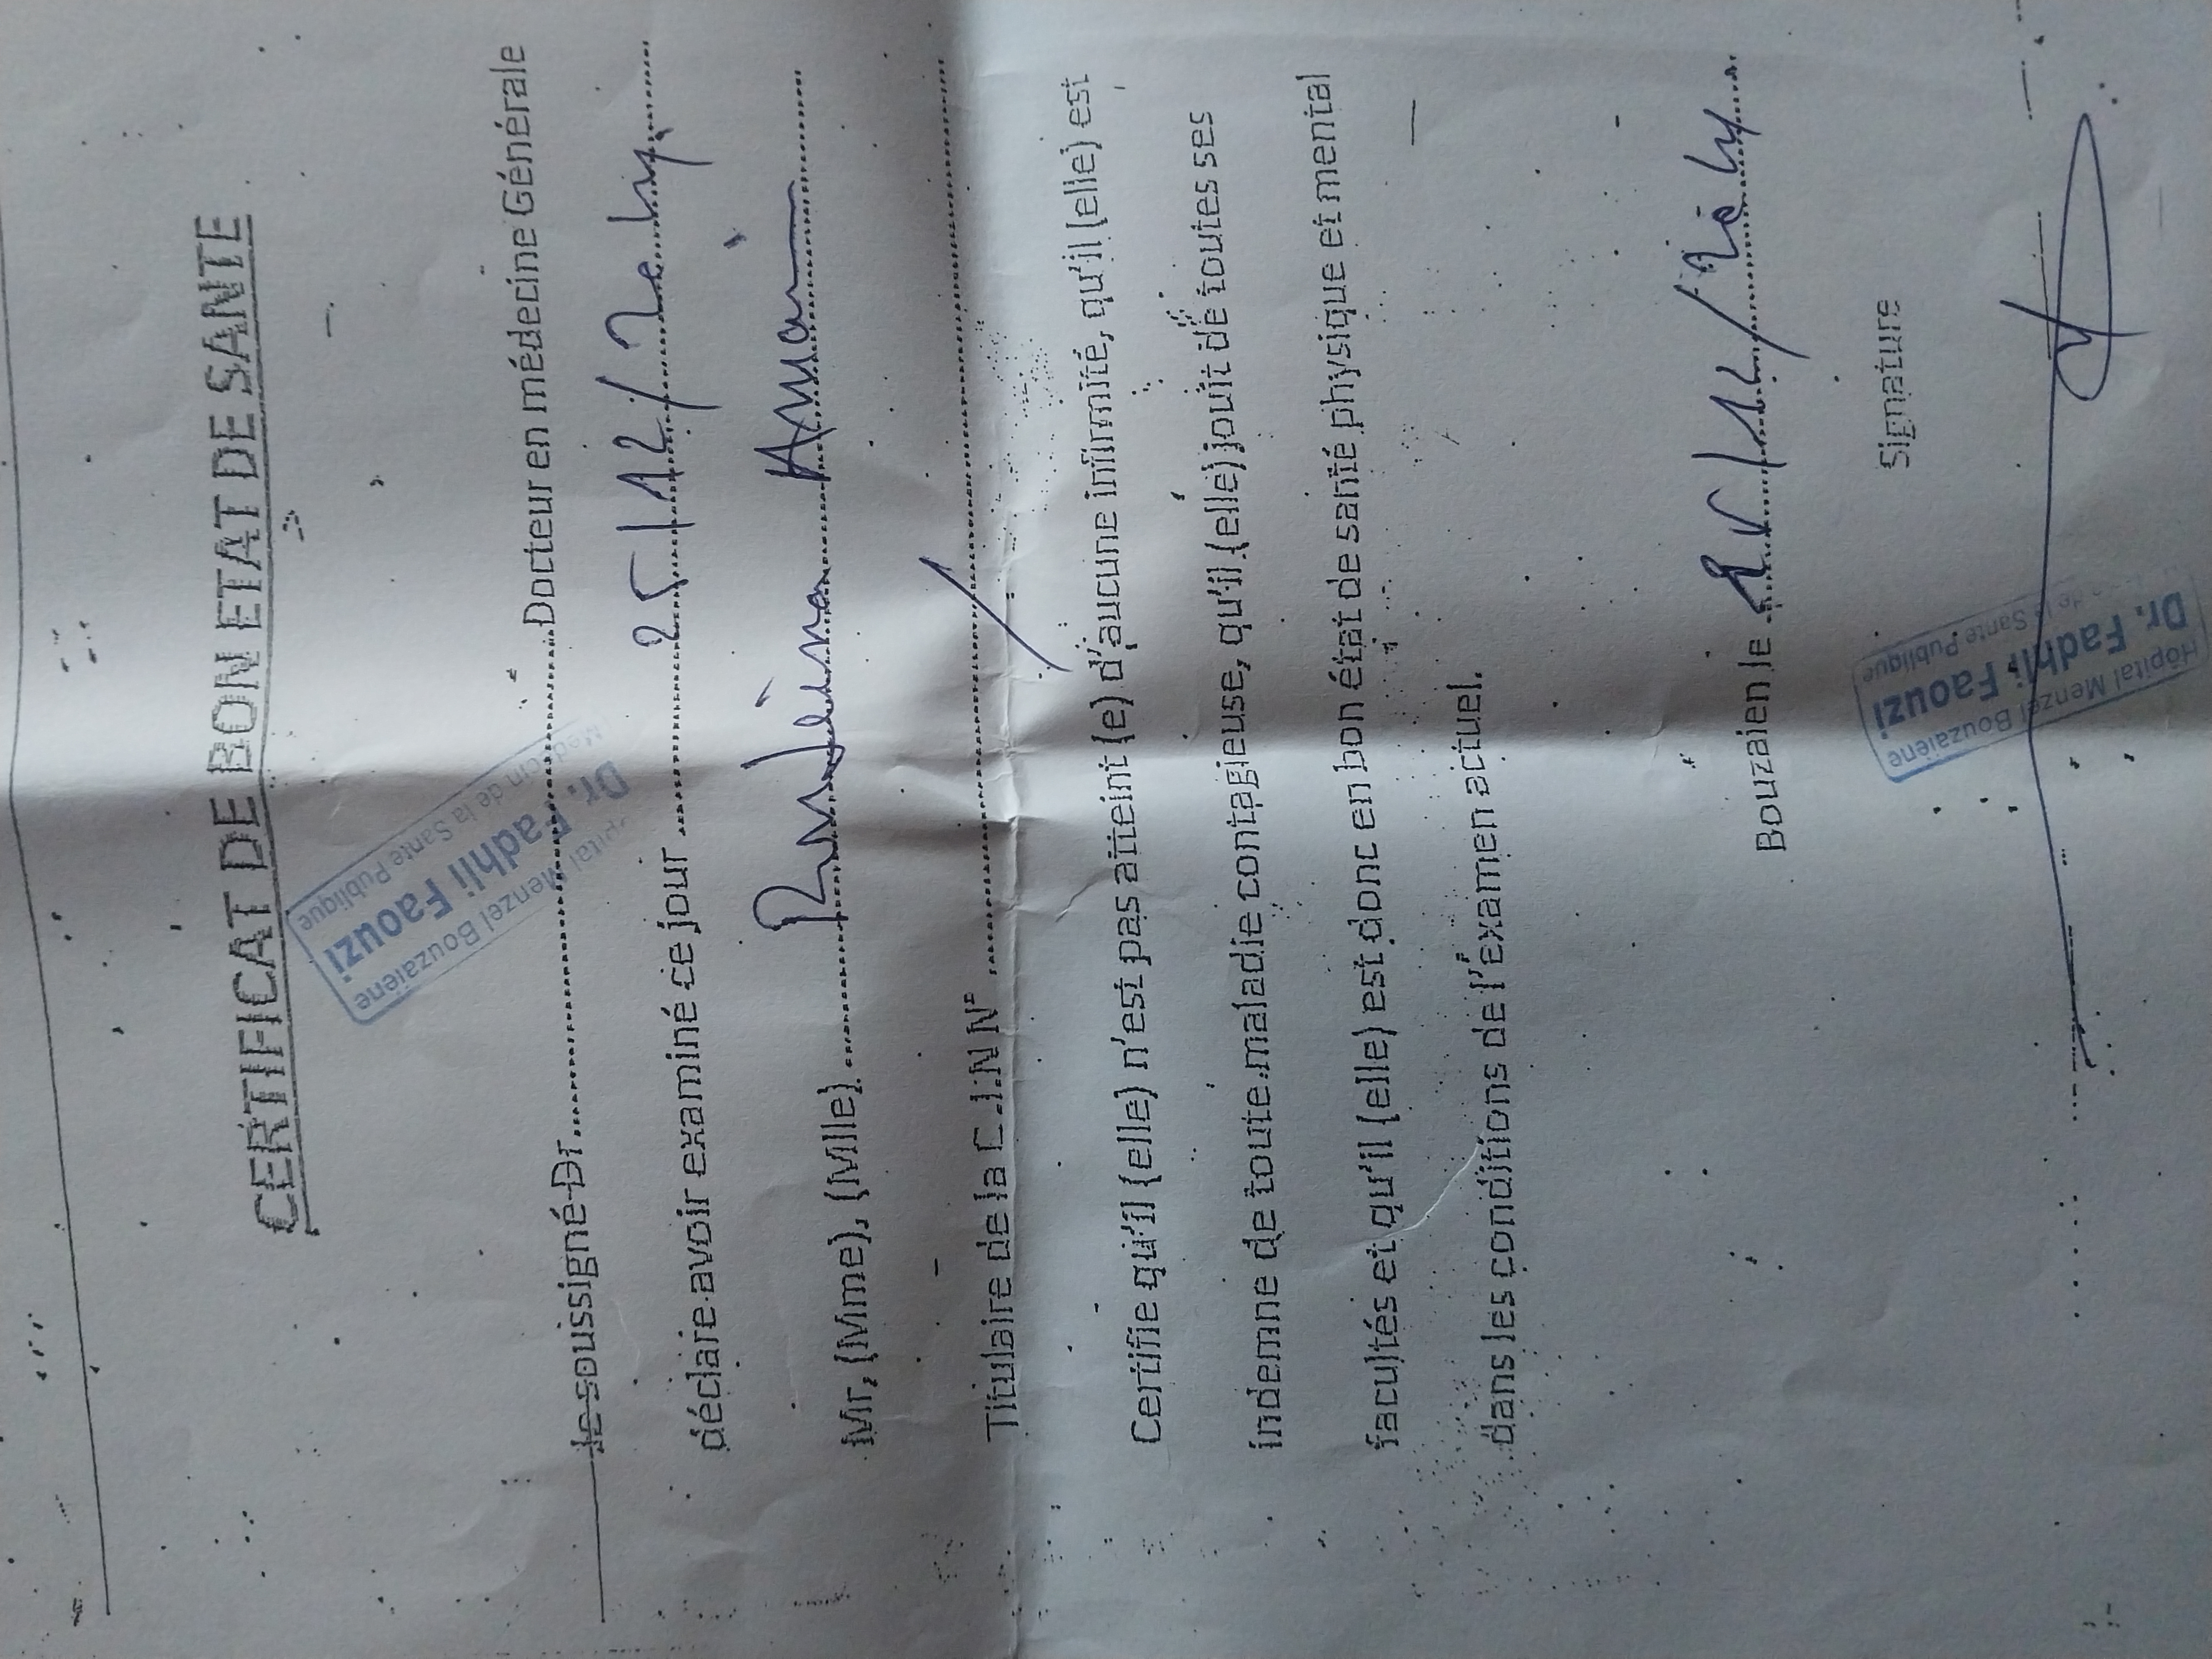 CERTIFICAT DE BON ETAT DE SANTE
Hôpital Menzel Bouzaiene
Dr. Fadhli Faouzi
Médecin de la Sante Publique
Je soussigné Dr..............Docteur en médecine Générale
déclare avoir examiné ce jour ..... 25/12/
Mr, (Mme), (Mlle) .....
Titulaire de la C.I.N N° ..... /
Certifie qu'il (elle) n'est pas atteint (e) d'aucune infirmité, qu'il (elle) est
indemne de toute maladie contagieuse, qu'il (elle) jouit de toutes ses
facultés et qu'il (elle) est donc en bon état de santé physique et mental
dans les conditions de l'examen actuel.
Bouzaien le
Signature
Hôpital Menzel Bouzaiene
Dr. Fadhli Faouzi
de la Sante Publique